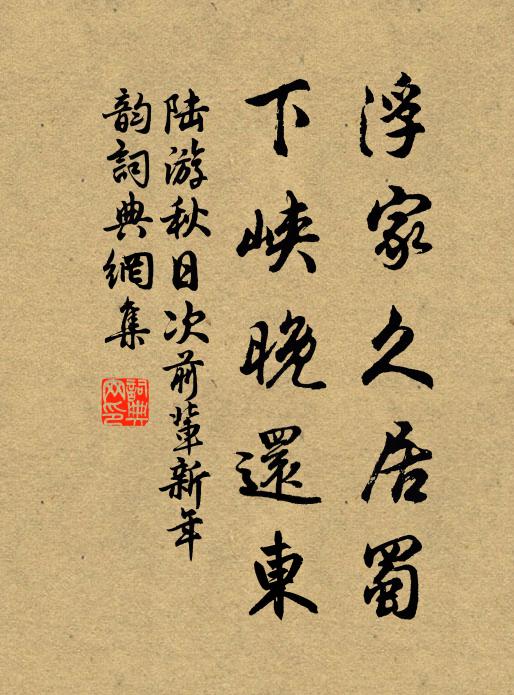 浮家久居蜀
下峽晚還東
陆游秋日次前輩新年
韵詞典網集
詞典網印